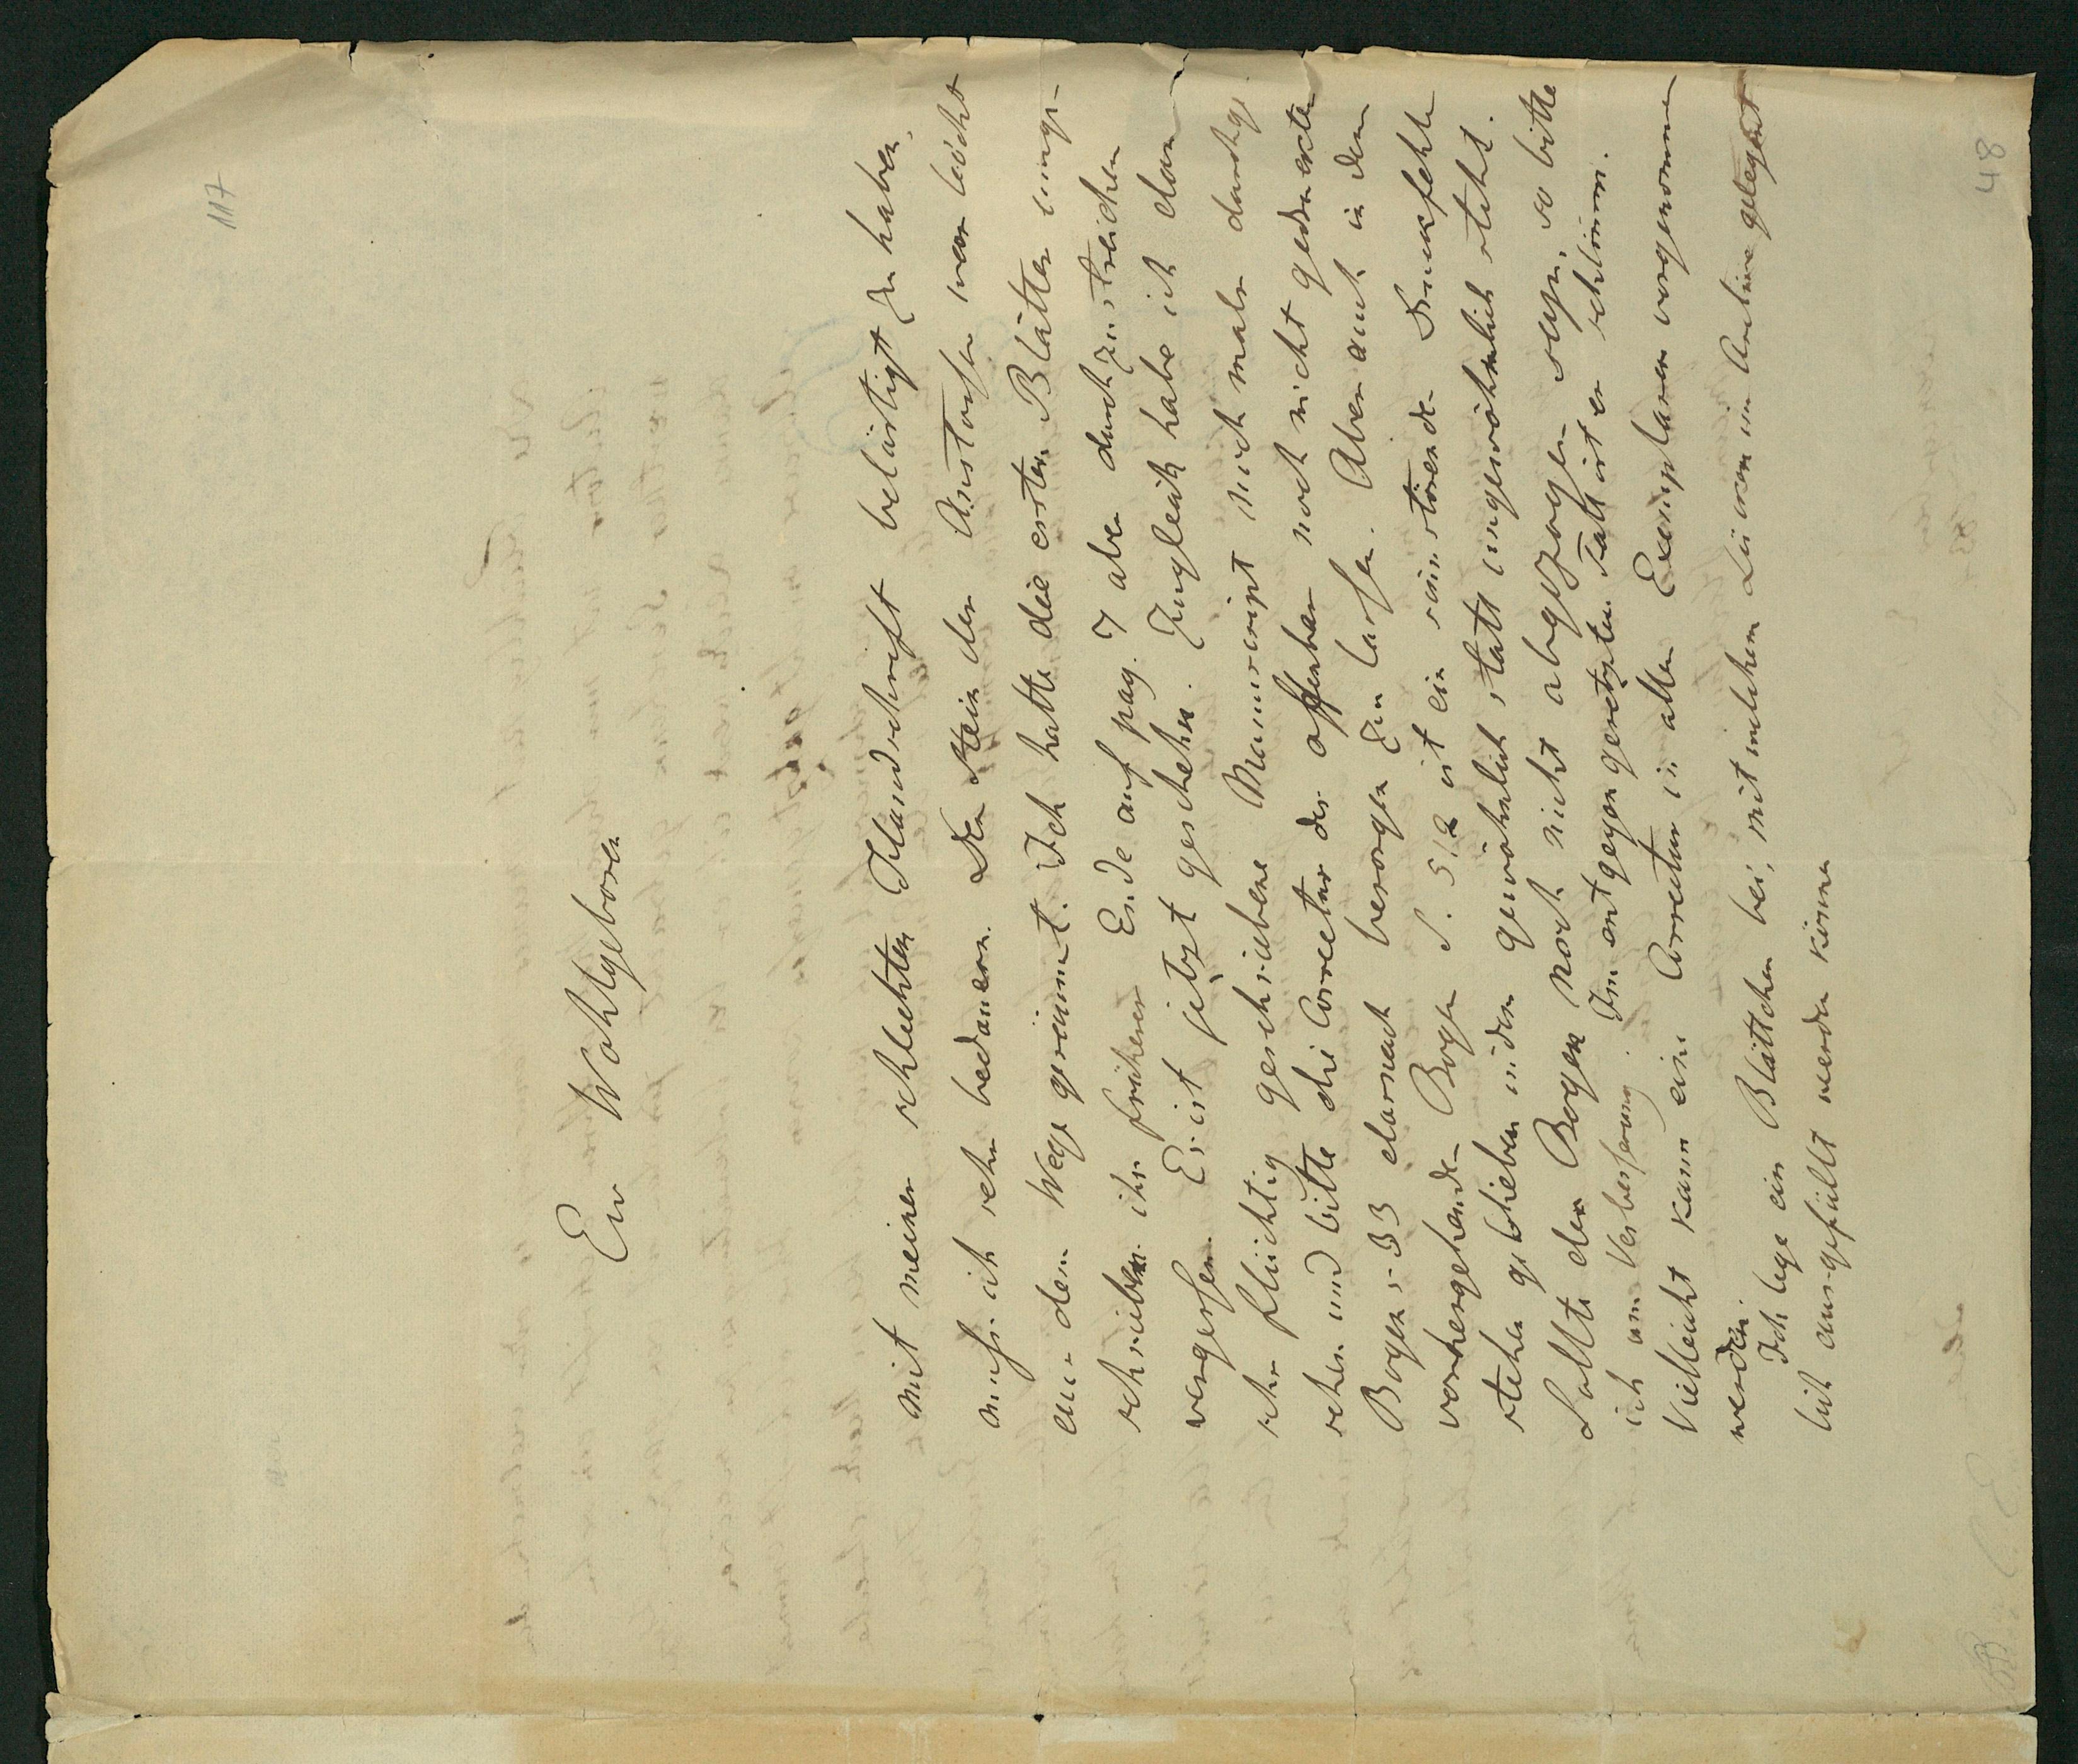 117
Ew Wohlgeboren
mit meiner schlechten Handschrift belästigt zu haben,
muß ich sehr bedauern. Der Stein des Anstoßes war leicht
aus dem Wege geräumt. Ich hatte die ersten Blätter umge-
schrieben ihr früheres Ende auf pag. 7 aber durchzustreichen
vergessen. Es ist jetzt geschehn. Zugleich habe ich das
sehr flüchtig geschriebene Manuscript nochmals durchge-
sehen und bitte die Correctur des offenbar noch nicht gedruckten
Bogens 33 darnach besorgen zu lassen. Aber auch in dem
vorhergehenden Bogen S. 512 ist ein sinnstörender Druckfehler
stehen geblieben indem gewöhnlich statt ungewöhnlich steht.
Sollte der Bogen noch nicht abgezogen seyn, so bitte
ich um Verbesserung. Im entgegengesetzten Fall ist es schlimm.
Vielleicht kann eine Correctur in allen Exemplaren vorgenommen
werden.
Ich lege ein Blättchen bei, mit welchem Lücken im Archive gelegent
lich ausgefüllt werden können
48